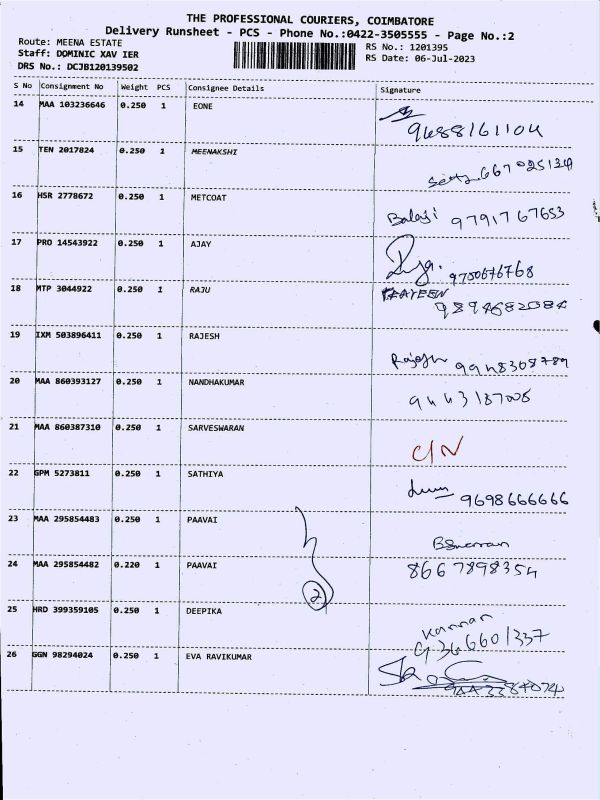 THE PROFESSIONAL COURIERS, COIMBATORE
Delivery Runsheet - PCS - Phone No.:0422-3505555 - Page No.:2
Route: MEENA ESTATE RS No.: 1201395
Staff: DOMINIC XAV IER RS Date: 06-Jul-2023
DRS No.: DCJB120139502
S No Consignment No Weight PCS Consignee Details Signature
14 MAA 103236646 0.250 1 EONE
9688161104
15 TEN 2017824 0.250 1 MEENAKSHI
16 HSR 2778672 0.250 1 METCOAT
Balaji 9791767653
17 PRO 14543922 0.250 1 AJAY
9750676768
18 MTP 3044922 0.250 1 RAJU
9894682084
19 IXM 503896411 0.250 1 RAJESH
Rajesh
20 MAA 860393127 0.250 1 NANDHAKUMAR
21 MAA 860387310 0.250 1 SARVESWARAN
C/N
22 GPM 5273811 0.250 1 SATHIYA
9698666666
23 MAA 295854483 0.250 1 PAAVAI
24 MAA 295854482 0.220 1 PAAVAI 8667898354
2
25 HRD 399359105 0.250 1 DEEPIKA
Kannan
9366601337
26 GGN 98294024 0.250 1 EVA RAVIKUMAR